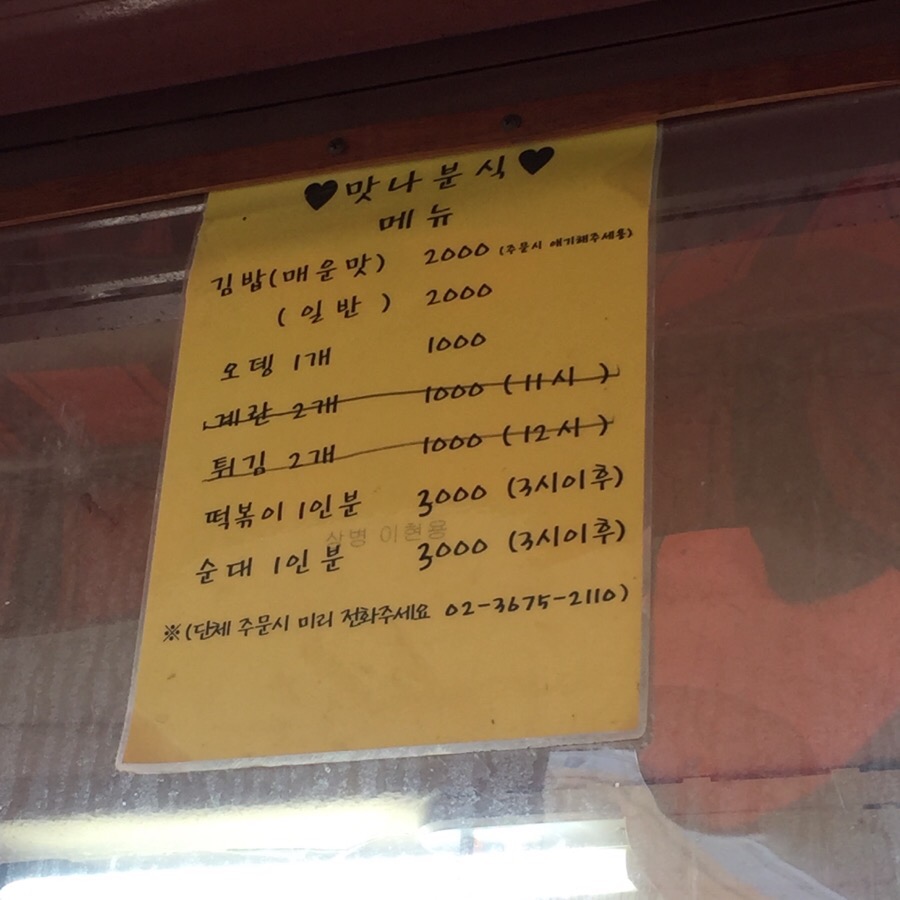 ♥맛나분식♥
메뉴
김밥(매운맛) 2000 (주문시 얘기해주세용)
(일반) 2000
오뎅 1개 1000
계란 2개 1000 (11시)
튀김 2개 1000 (12시)
떡볶이 1인분 3000 (3시이후)
상병 이현용
순대 1인분 3000 (3시이후)
※(단체 주문시 미리 전화주세요 02-3675-2110)